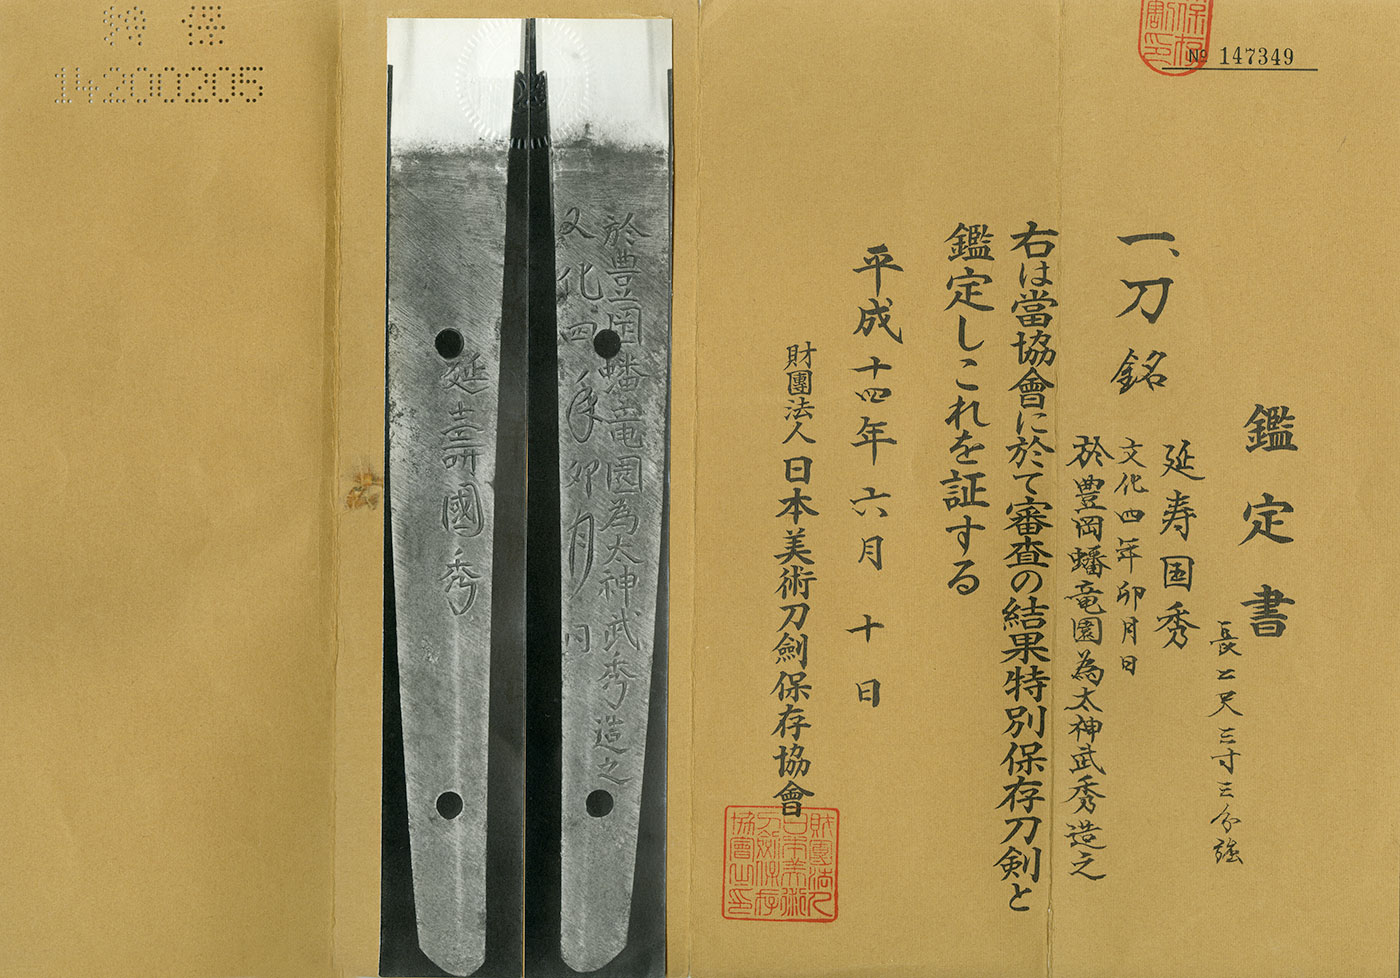 № 147349
鑑定書
長二尺三寸三分強
一、刀 銘
延寿国秀
文化四年卯月日
於豊岡蟠竜園為太神武秀造之
右は當協會に於て審査の結果特別保存刀剣と
鑑定しこれを証する
平成十四年六月十日
財團法人日本美術刀劍保存協會
財團法人日本美術刀劍保存協會之印
於豊岡蟠竜園為太神武秀造之
文化四年卯月日
延壽國秀
特保
14200205